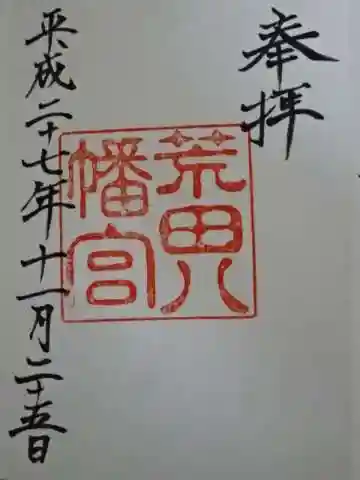 奉拝
荒田八
幡宮
平成二十七年十一月二十五日